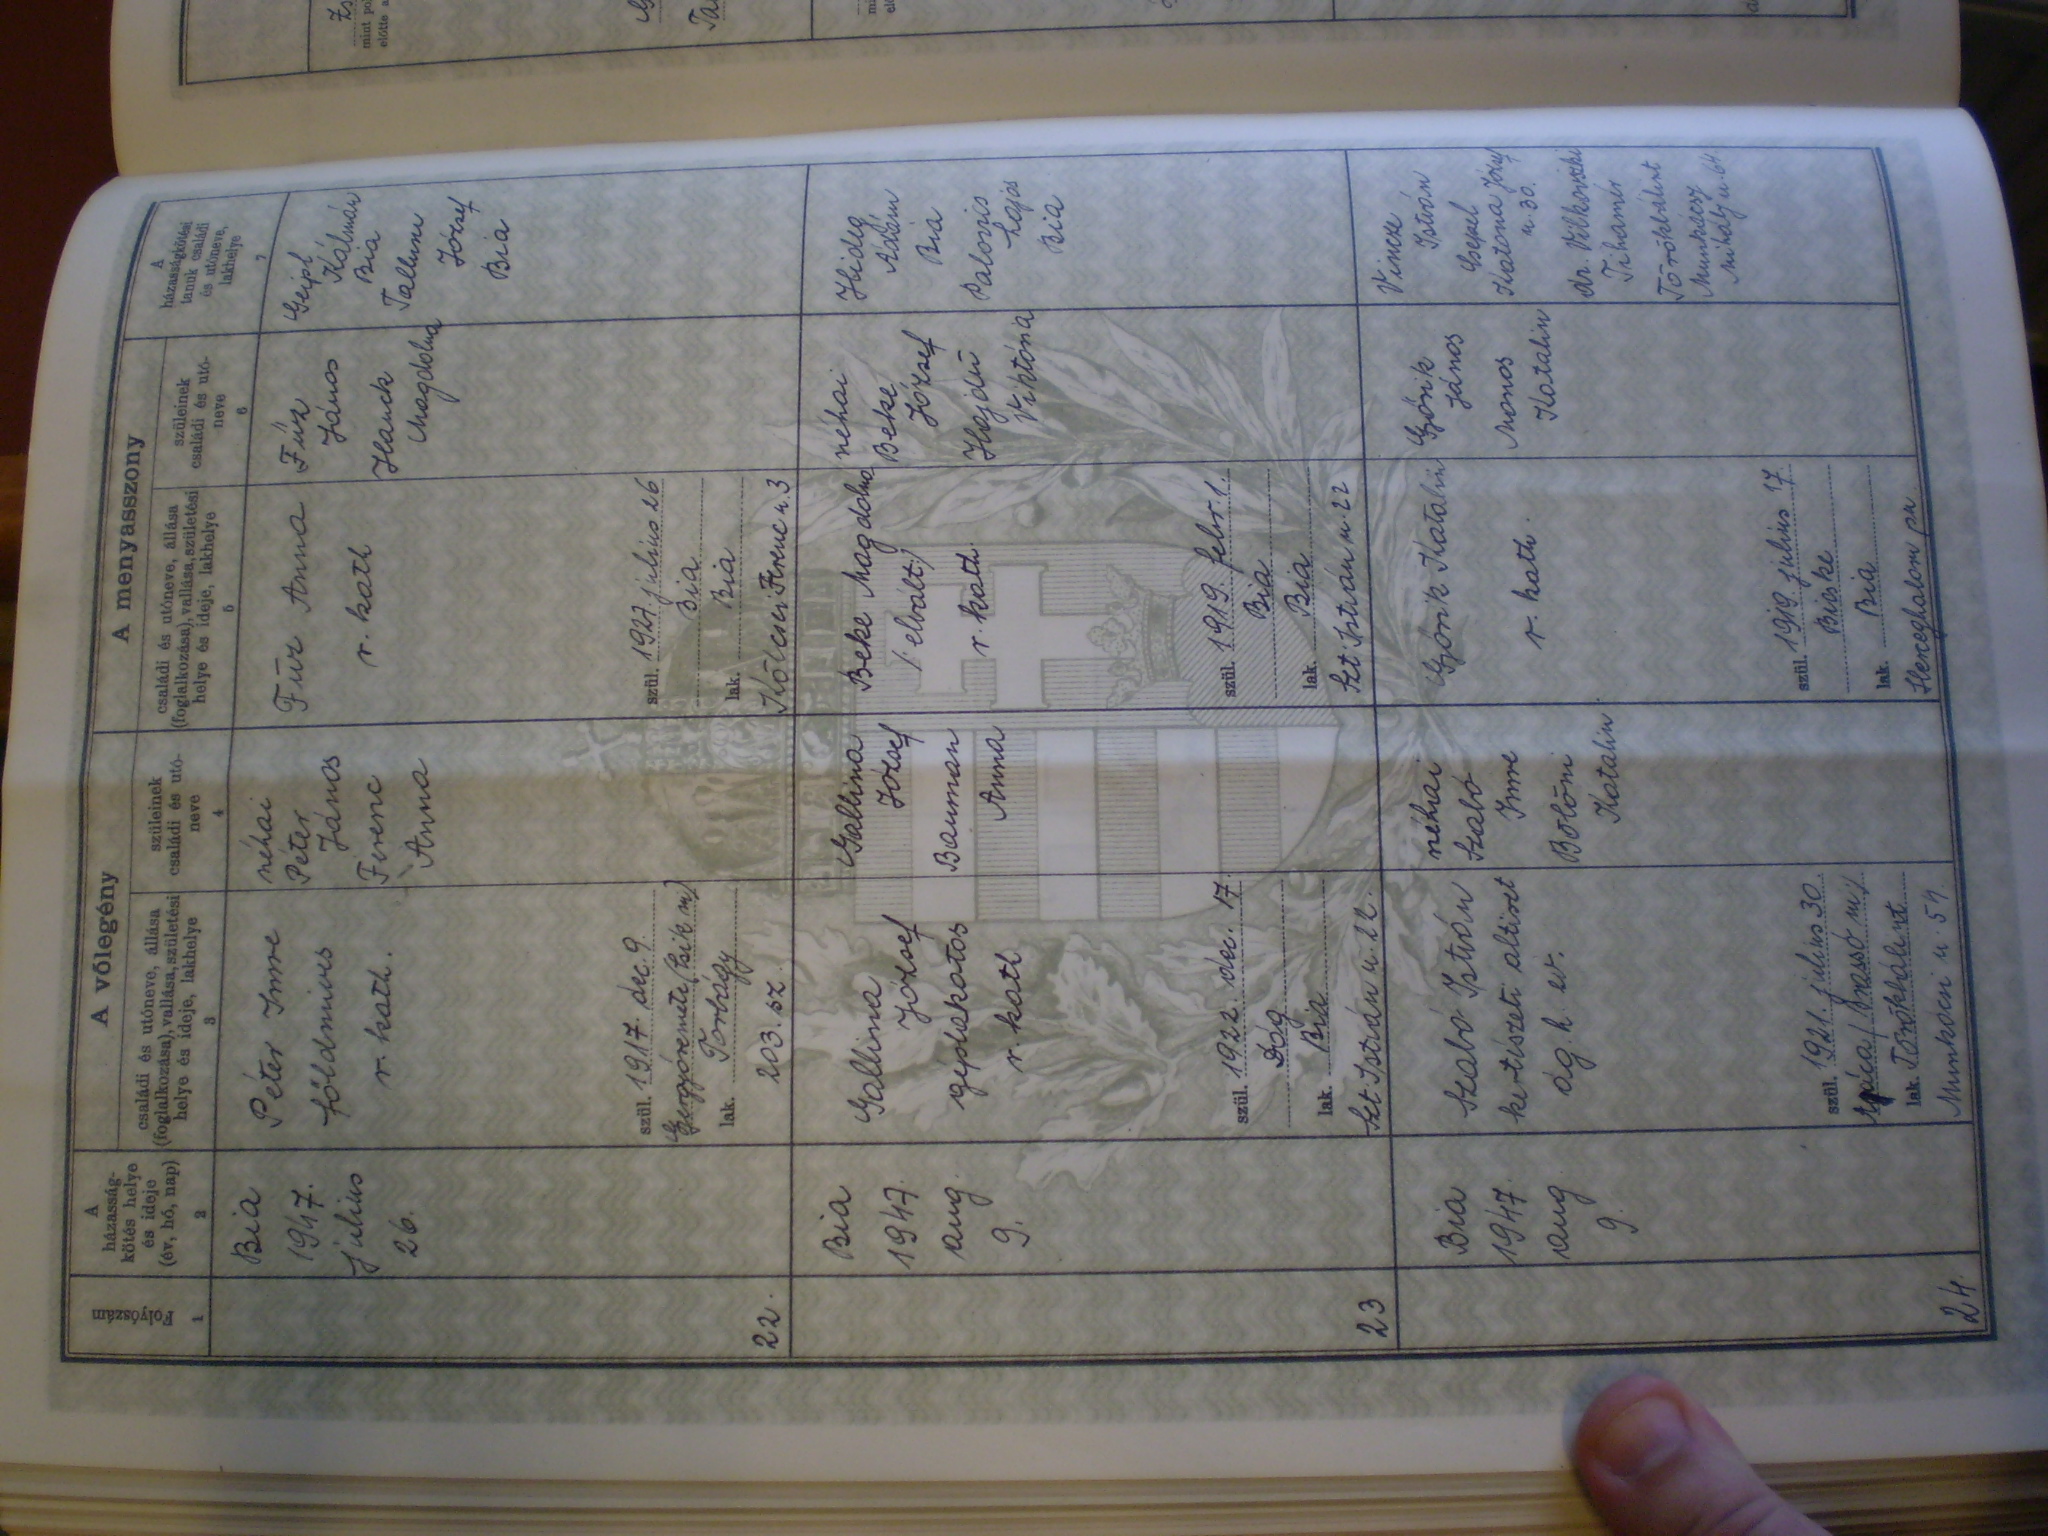 A vőlegény
A menyasszony
Folyószám
A
házasság-
kötés helye
és ideje
(év, hó, nap)
családi és utóneve, állása
(foglalkozása), vallása, születési
helye és ideje, lakhelye
szüleinek
családi és utó-
neve
családi és utóneve, állása
(foglalkozása), vallása, születési
helye és ideje, lakhelye
szüleinek
családi és utó-
neve
A
házasságkötési
tanuk családi
és utóneve,
lakhelye
1
2
3
4
5
6
7
22.
Bia
1947.
július
26.
Péter Imre
földmives
r. kath.
szül. 1917. dec. 9.
lak. Torbágy
203. sz.
néhai
Péter
János
Ferenc
Anna
Fúr Anna
r. kath
szül. 1927. július 26
Bia
lak. Bia
Kölcsei Ferenc u. 3
Fúr
János
Hanek
Magdolna
Geipl
Kálmán
Bia
Tallum
József
Bia
23
Bia
1947.
aug.
9.
Gallina
József
géplakatos
r. kath
szül. 1922. dec. 17.
Dág
lak. Bia
Szt István u. 22.
Gallina
József
Bauman
Anna
Beke Magdolna
(elvált)
r. kath.
szül. 1919. febr. 1.
Bia
lak. Bia
Szt István u 22
néhai
Beke
József
Hajdú
Viktória
Hideg
Ádám
Bia
Palovics
Lajos
Bia
24.
Bia
1947.
aug
9.
Szabó István
kertészeti altiszt
ág. h. ev.
szül. 1921. július 30.
lak. Törökbálint
néhai
Szabó
Imre
Bölöni
Katalin
Győrik Katalin
r. kath.
szül. 1919 július 17
Bicske
lak. Bia
Herceghalom pu.
Győrik
János
Monos
Katalin
Vincze
István
Csepel
Katona József
u. 30.
Tihamér
Törökbálint
Munkácsy
Mihály u. 64